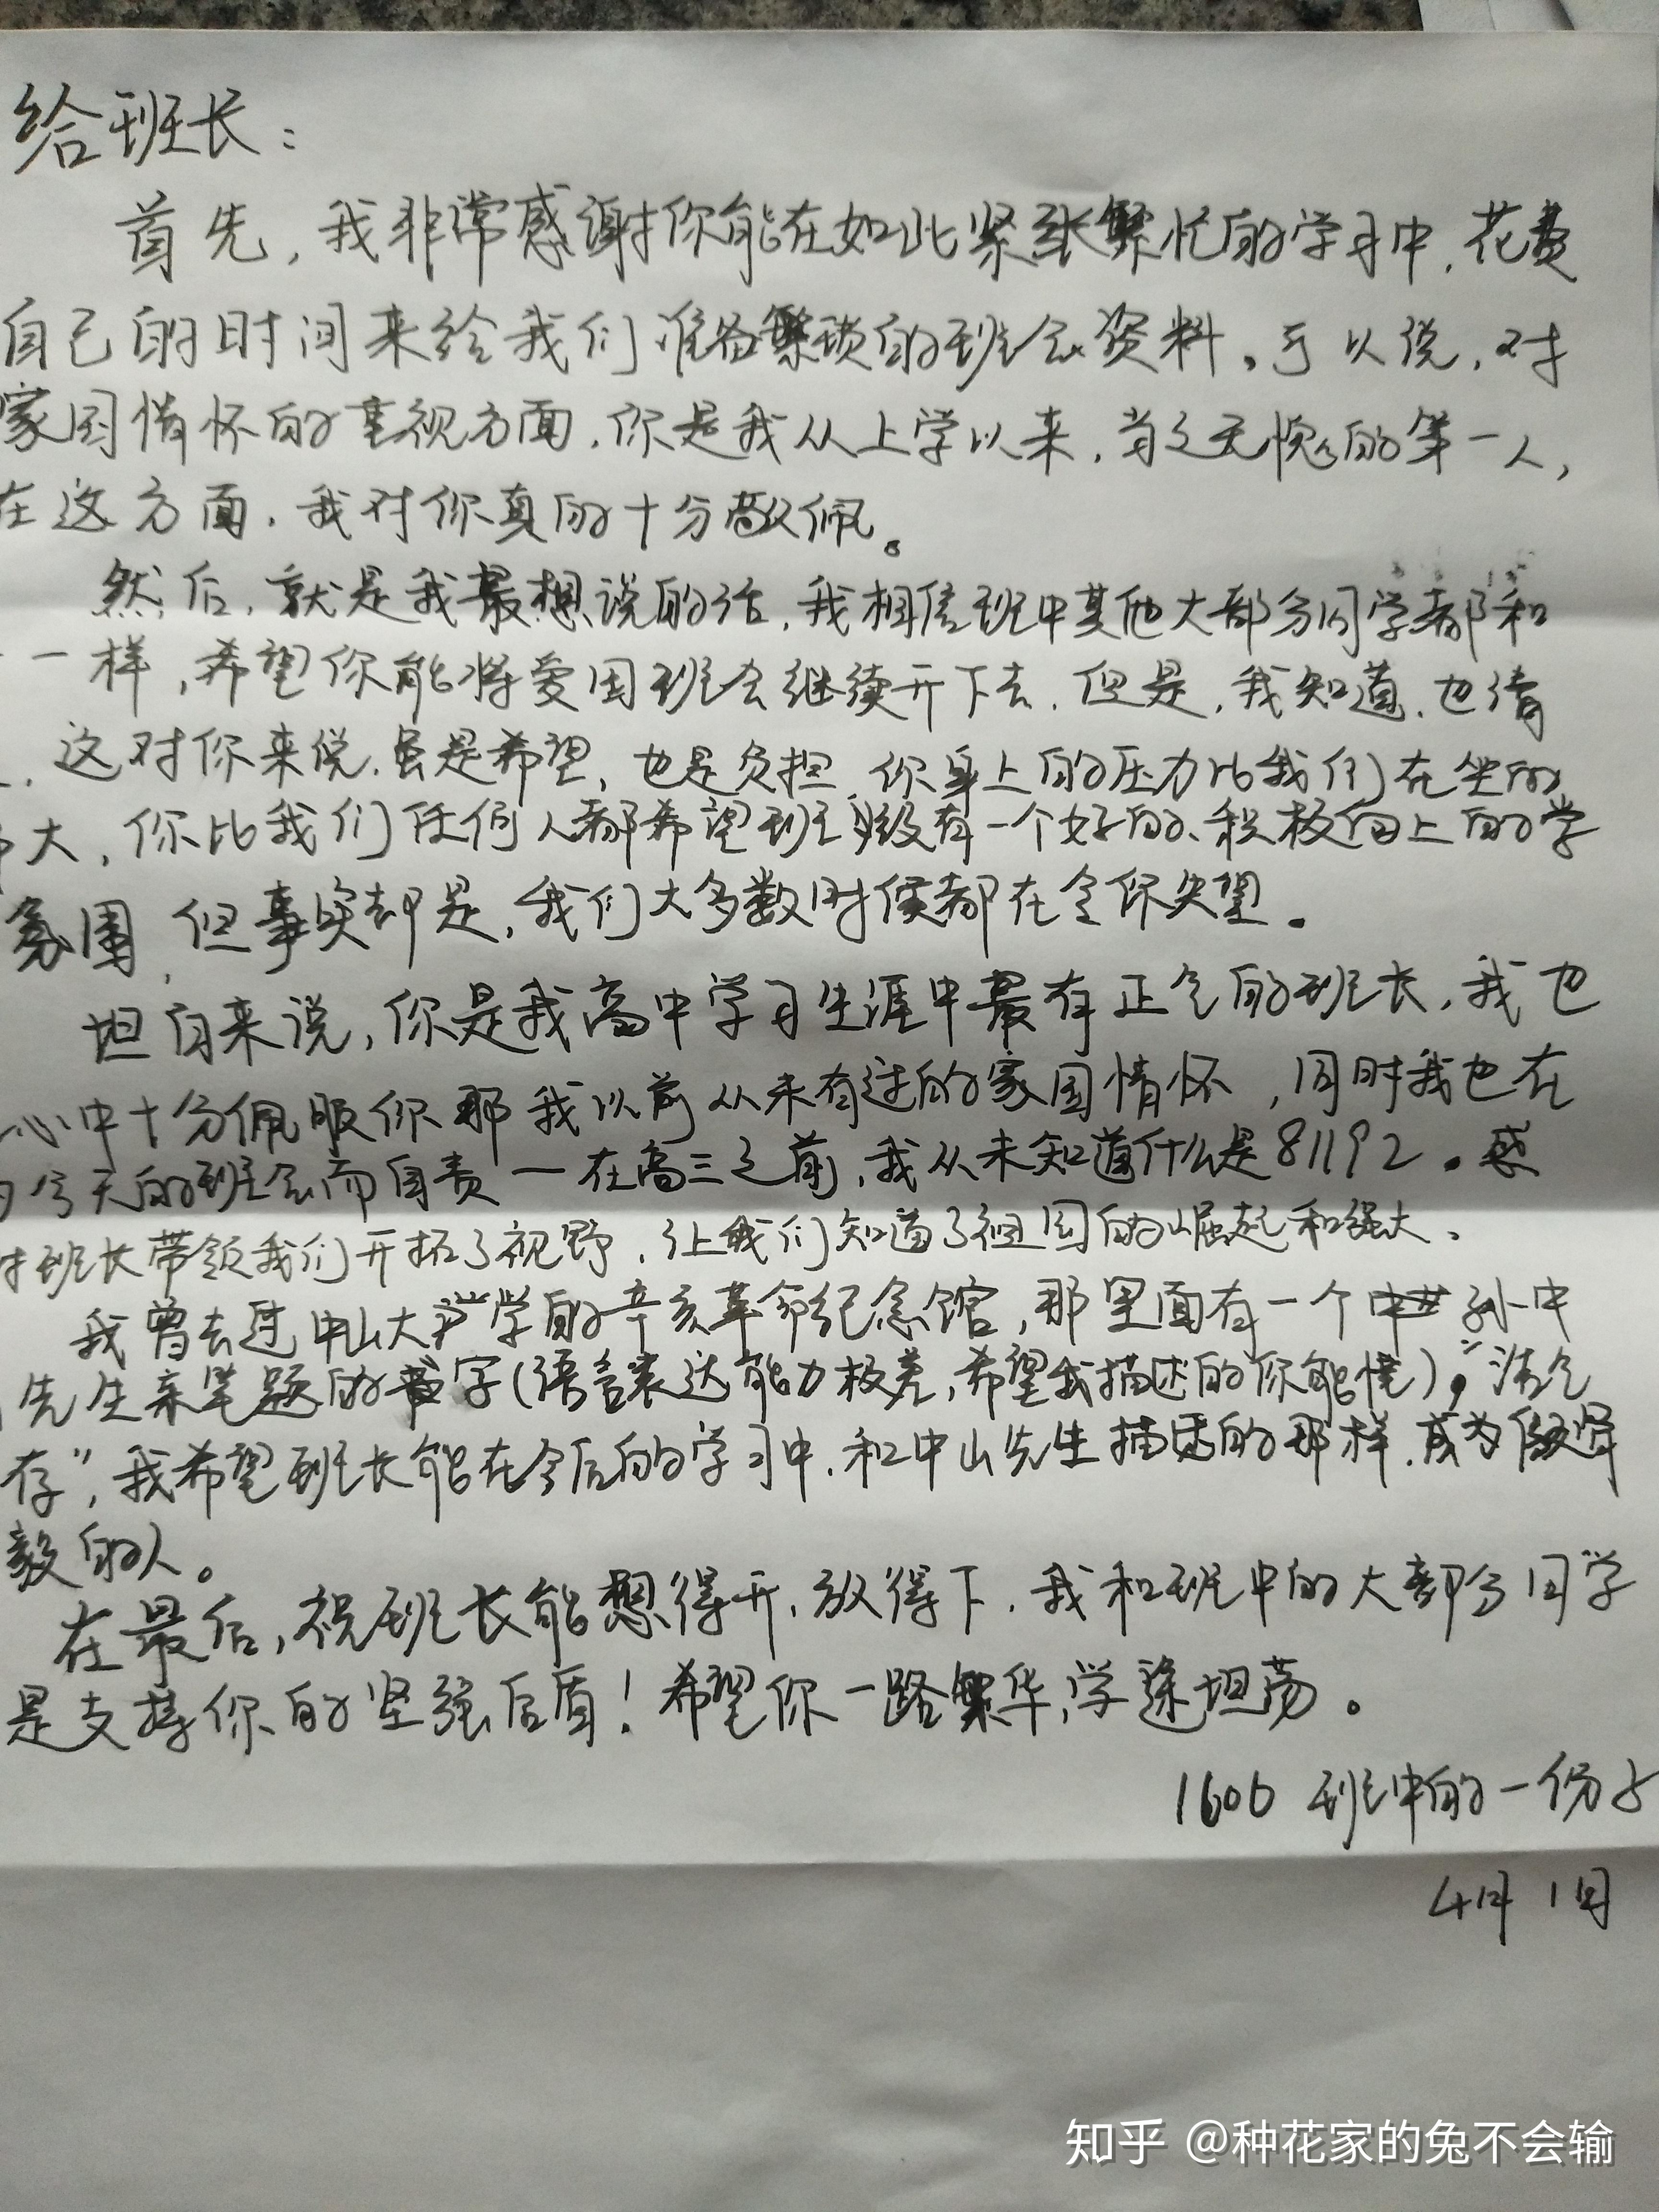 给班长：
首先，我非常感谢你能在如此紧张繁忙的学习中，花费
自己的时间来给我们准备繁琐的班会资料。可以说，对
家国情怀的重视方面，你是我从上学以来，当之无愧的第一人，
在这方面，我对你真的十分敬佩。
然后，就是我最想说的话，我相信班中其他大部分同学都和
一样，希望你能将爱国班会继续开下去，但是，我知道，也清
，这对你来说，虽是希望，也是负担，你身上的压力比我们在坐的
大，你比我们任何人都希望班级有一个好的、积极向上的学
氛围，但事实却是，我们大多数时候都在令你失望。
坦白来说，你是我高中学习生涯中最有正气的班长，我也
心中十分佩服你那我以前从未有过的家国情怀，同时我也在
为今天的班会而自责一在高三之前，我从未知道什么是81192。感
谢班长带领我们开拓了视野，让我们知道了祖国的崛起和强大。
我曾去过中山大学的辛亥革命纪念馆，那里面有一个孙中
先生亲笔题的字（语言表达能力极差，希望我描述的你能懂），“浩气
存”，我希望班长能在今后的学习中，和中山先生描述的那样，成为
毅的人。
在最后，祝班长能想得开，放得下，我和班中的大部分同学
是支持你的坚强后盾！希望你一路繁华，学途坦荡。
1606 班中的一份子
4月1日
知乎 @种花家的兔不会输